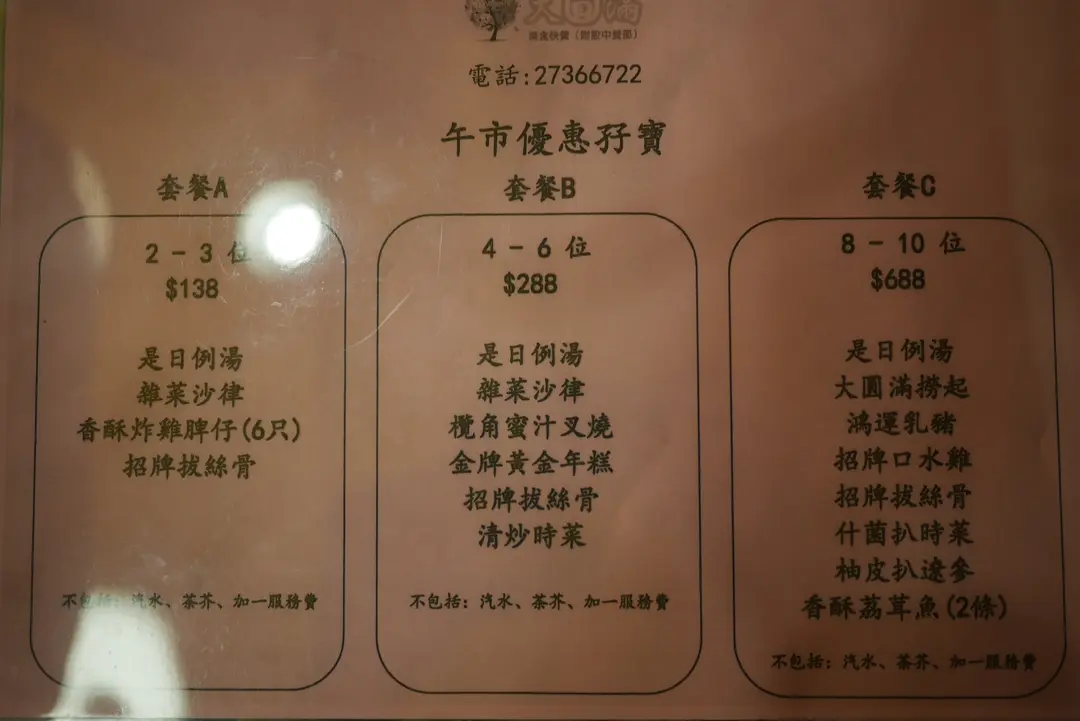 大圓滿
電話:27366722
午市優惠孖寶
套餐A
2 - 3 位
$138
是日例湯
雜菜沙律
香酥炸雞脾仔(6只)
招牌拔絲骨
不包括: 汽水、茶芥、加一服務費
套餐B
4 - 6 位
$288
是日例湯
雜菜沙律
欖角蜜汁叉燒
金牌黃金年糕
招牌拔絲骨
清炒時菜
不包括: 汽水、茶芥、加一服務費
套餐C
8 - 10 位
$688
是日例湯
大圓滿撈起
鴻運乳豬
招牌口水雞
招牌拔絲骨
什菌扒時菜
柚皮扒遼參
香酥荔茸魚(2條)
不包括: 汽水、茶芥、加一服務費